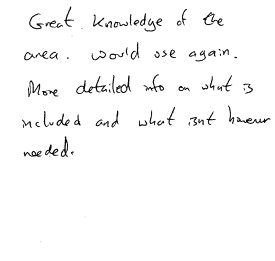 Great knowledge of the
area. would use again.
More detailed info on what is
included and what isnt however
needed.